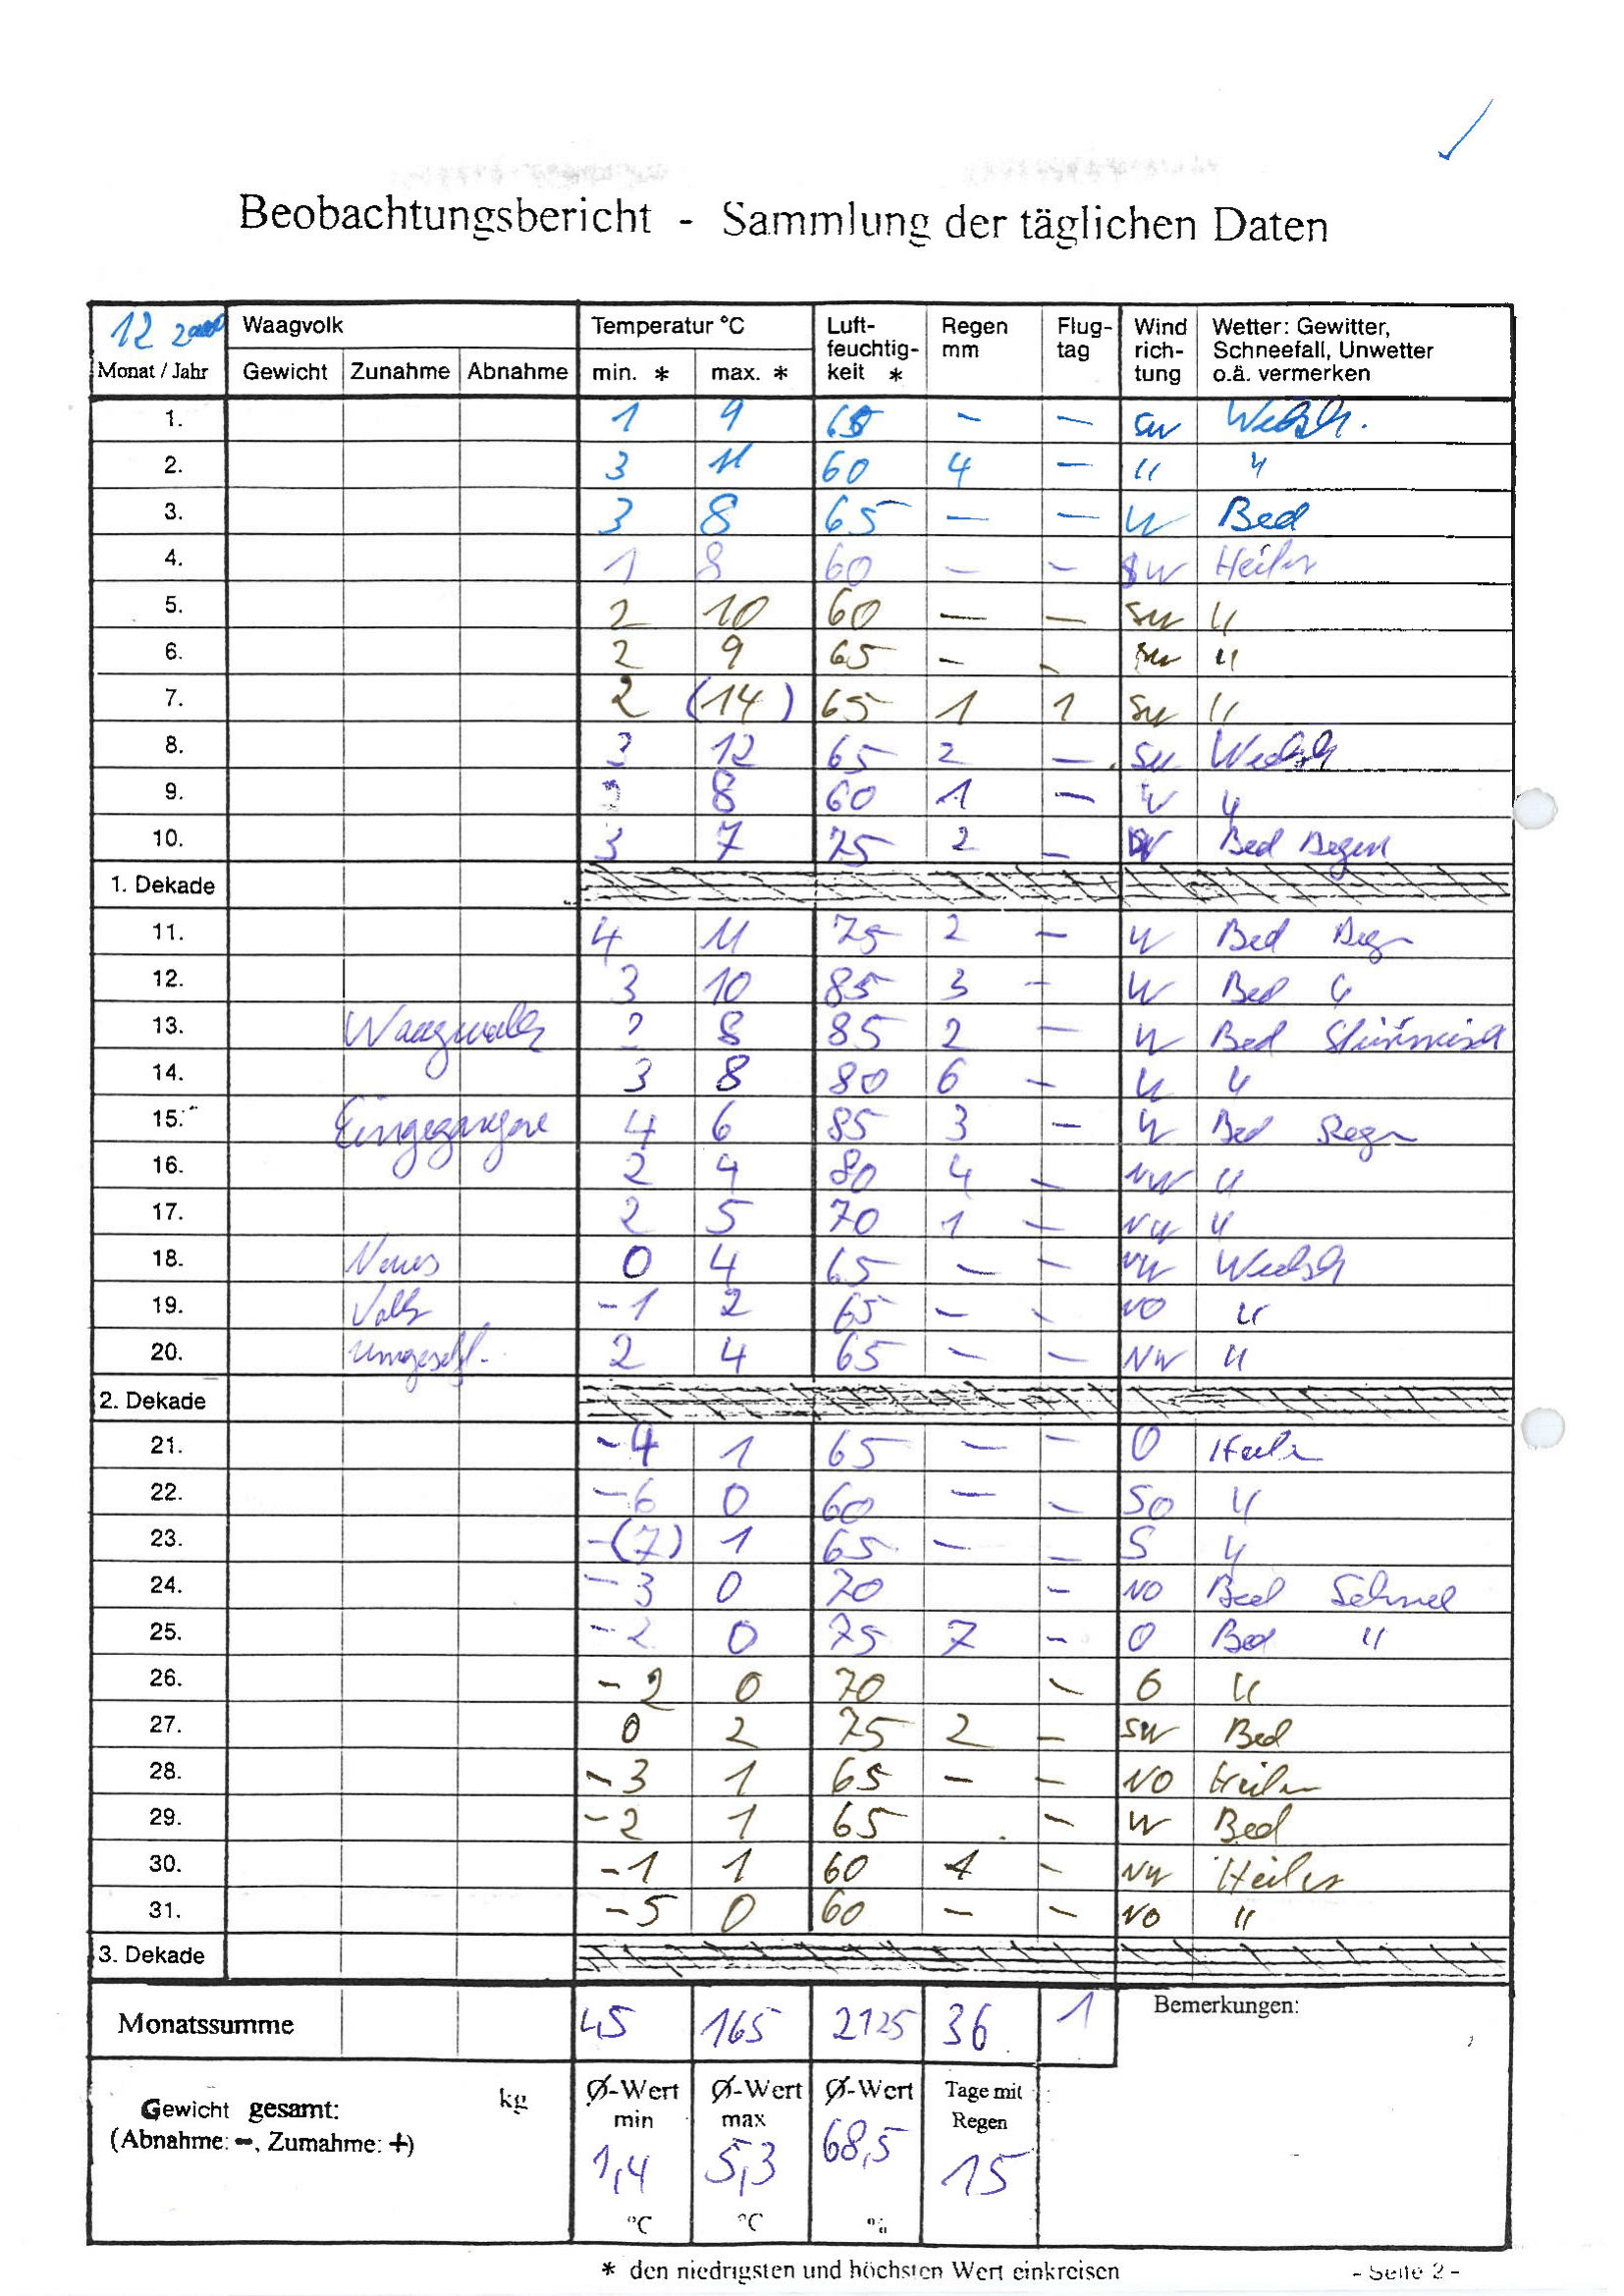 Beobachtungsbericht - Sammlung der täglichen Daten
12 2000 Waagvolk Temperatur °C Luft-feuchtig-keit * Regen mm Flug-tag Wind rich-tung Wetter: Gewitter, Schneefall, Unwetter o.ä. vermerken
Monat / Jahr Gewicht Zunahme Abnahme min. * max. *
1. 1 9 65 – – SW Wechs.
2. 3 11 60 4 – " "
3. 3 8 65 – – W Bed
4. 1 8 60 – – SW Heiter
5. 2 10 60 – – SW "
6. 2 9 65 – – SW "
7. 2 (14) 65 1 1 SW "
8. 3 12 65 2 – SW Wechs
9. 8 60 1 – W "
10. 3 7 75 2 – W Bed Regen
1. Dekade
11. 4 11 75 2 – W Bed Regn
12. 3 10 85 3 – W Bed "
13. Waagvolk 2 8 85 2 – W Bed Stürmisch
14. 3 8 80 6 – W "
15. Eingegangen 4 6 85 3 – W Bed Regn
16. 2 9 80 4 – NW "
17. 2 5 70 1 – NW "
18. Neues 0 4 65 – – NW Wechs
19. Volk -1 2 65 – – NO "
20. umgesetzt. 2 4 65 – – NW "
2. Dekade
21. -4 1 65 – – O Heiter
22. -6 0 60 – – SO "
23. -(7) 1 65 – – S "
24. -3 0 70 – NO Bed Schnee
25. -2 0 75 7 – O Bed "
26. -2 0 70 – O "
27. 0 2 75 2 – SW Bed
28. -3 1 65 – – NO Heiter
29. -2 1 65 – W Bed
30. -1 1 60 1 – NW Heiter
31. -5 0 60 – – NO "
3. Dekade
Monatssumme 45 165 2125 36 1 Bemerkungen:
Gewicht gesamt: kg
(Abnahme: -, Zumahme: +)
Ø-Wert min Ø-Wert max Ø-Wert Tage mit Regen
1,4 5,3 68,5 15
°C °C %
* den niedrigsten und höchsten Wert einkreisen - Seite 2 -